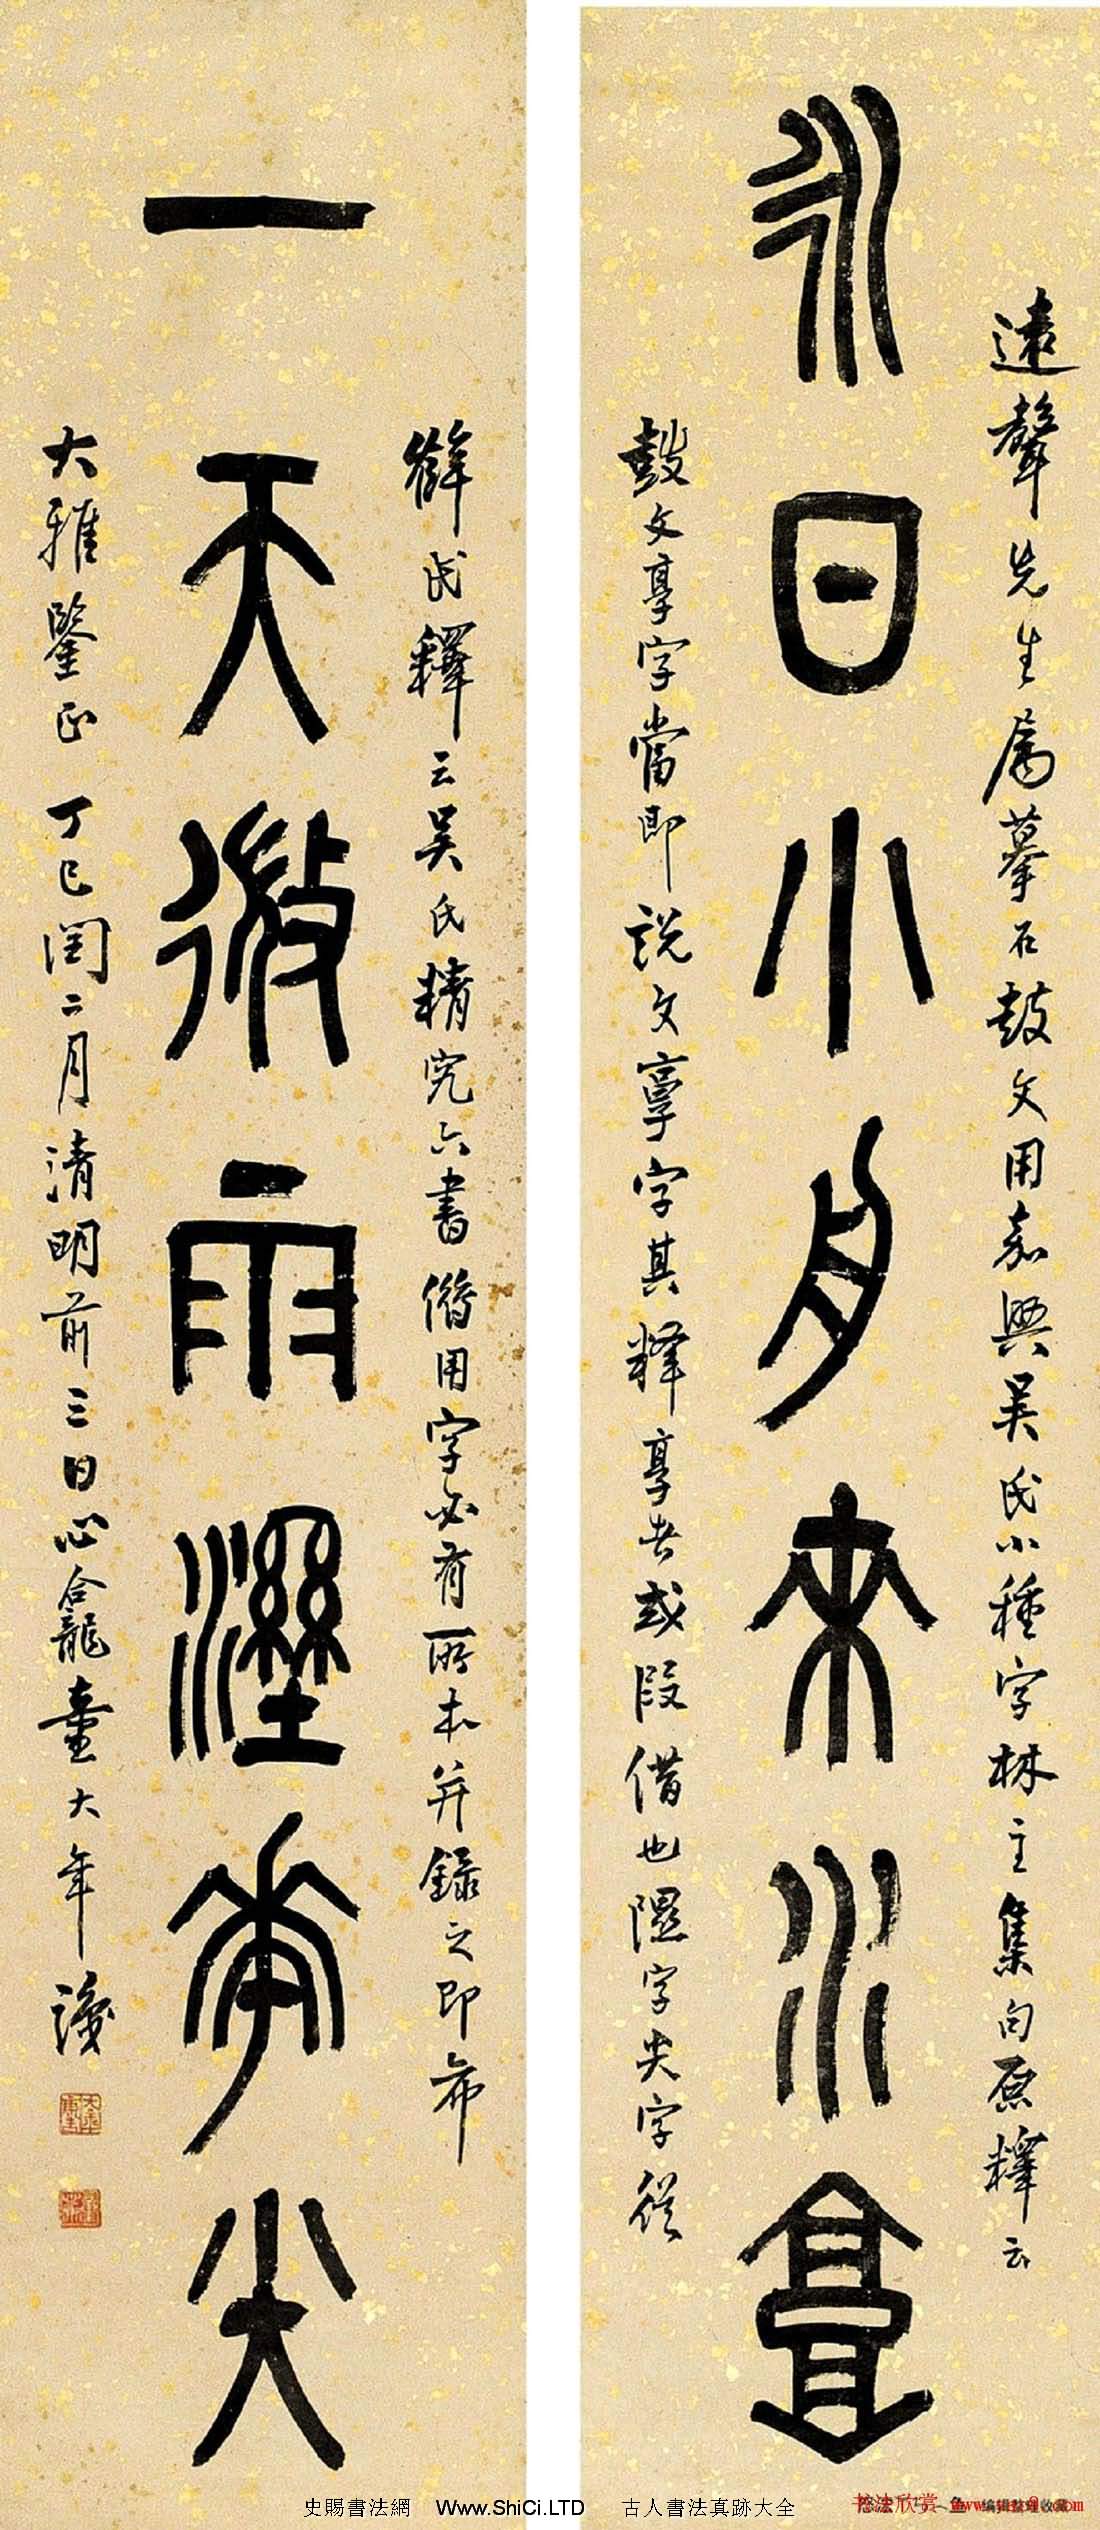 遠聲先生屬摹石鼓文用嘉興吳氏小種字林主集句原釋云
永日小舟來水享
鼓文享字當即說文享字其釋享者或叚借也隰字尖字從
薛氏釋云吳氏精究六書僭用字必有所本并錄之即希
一天微雨溼華尖
大雅鑒正 丁巳閏二月清明前三日心龕童大年
史賜書法網 Www.ShiCi.LTD 古人書法真跡大全
书法欣赏
编辑整理收藏